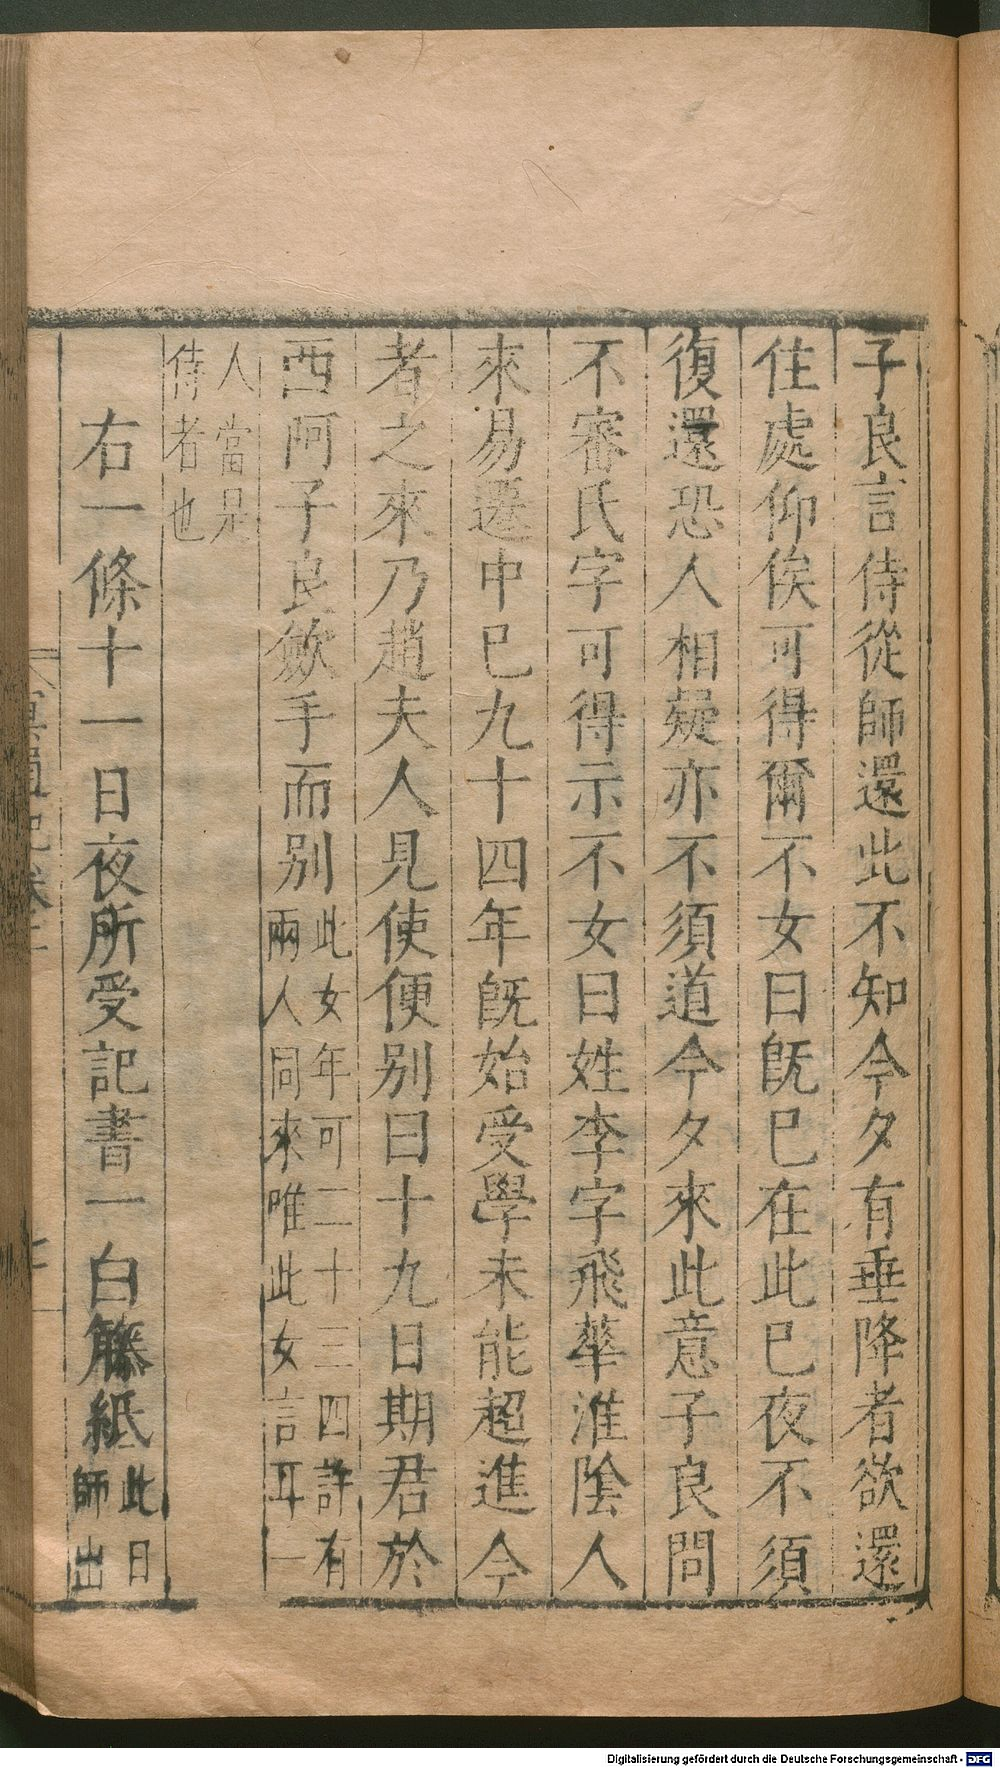 子良言侍從師還此不知今夕有垂降者欲還
住處仰俟可得爾不女曰既巳在此巳夜不須
復還恐人相疑亦不須道今夕來此意子良問
不審氏字可得示不女曰姓李字飛華淮陰人
來易遷中巳九十四年旣始受學未能超進今
者之來乃趙夫人見使便别曰十九日期君於
西阿子良斂手而别
此女年可二十三四許有
兩人同來唯此女言耳一
人當是
侍者也
右一條十一日夜所受記書一白籐紙
此日
師出
Digitalisierung gefördert durch die Deutsche Forschungsgemeinschaft - DFG